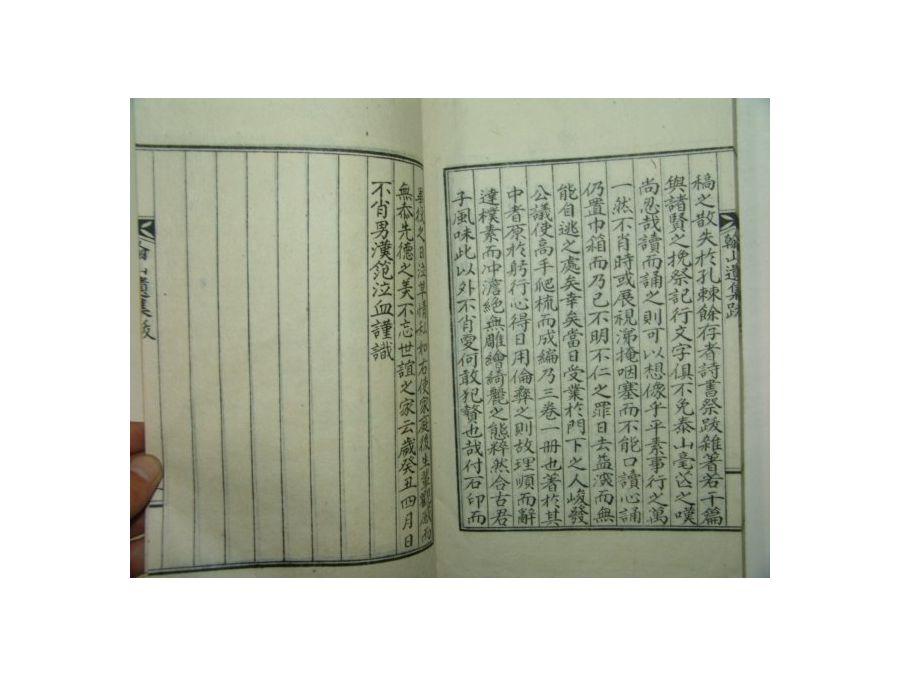 稿之散失於孔棘餘存者詩書祭跋雜著若干篇
與諸賢之挽祭記行文字俱不免泰山毫芒之嘆
尚忍哉讀而誦之則可以想像乎平素事行之萬
一然不肖時或展視涕掩咽塞而不能口讀心誦
仍置巾箱而乃已不明不仁之罪日去益深而無
能自逃之處矣幸矣當日受業於門下之人峻發
公議使高手爬梳而成編乃三卷一冊也著於其
中者原於躬行心得日用倫彝之則故理順而辭
達樸素而沖澹絕無雕繪綺麗之態粹然合古君
子風味此以外不肖憂何敢犯贅也哉付石印而
山遺集跋
之日泣草情私如右使家庭後生
無忝先德之美不忘世誼之家云歲癸丑四月日
不肖男漢範泣血謹識
山遺集跋